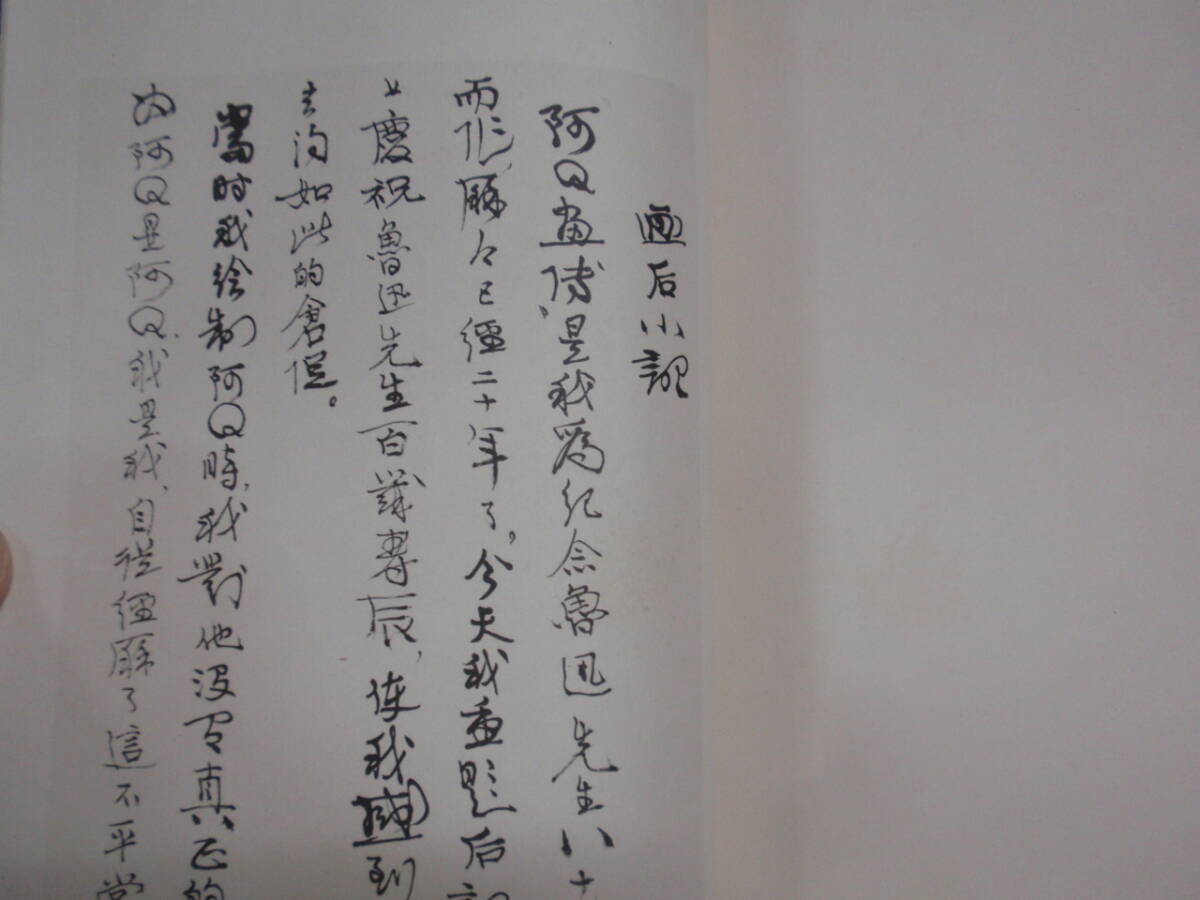 画后小記
阿Q画传,是我爲纪念魯迅先生八十
而作,歷々已經二十年了。今天我重题后記
上慶祝魯迅先生百歲壽辰,使我感到
去的如此的倉促。
當时我绘制阿Q時,我對他没有真正的
为阿Q是阿Q,我是我,自從經歷了這不平常